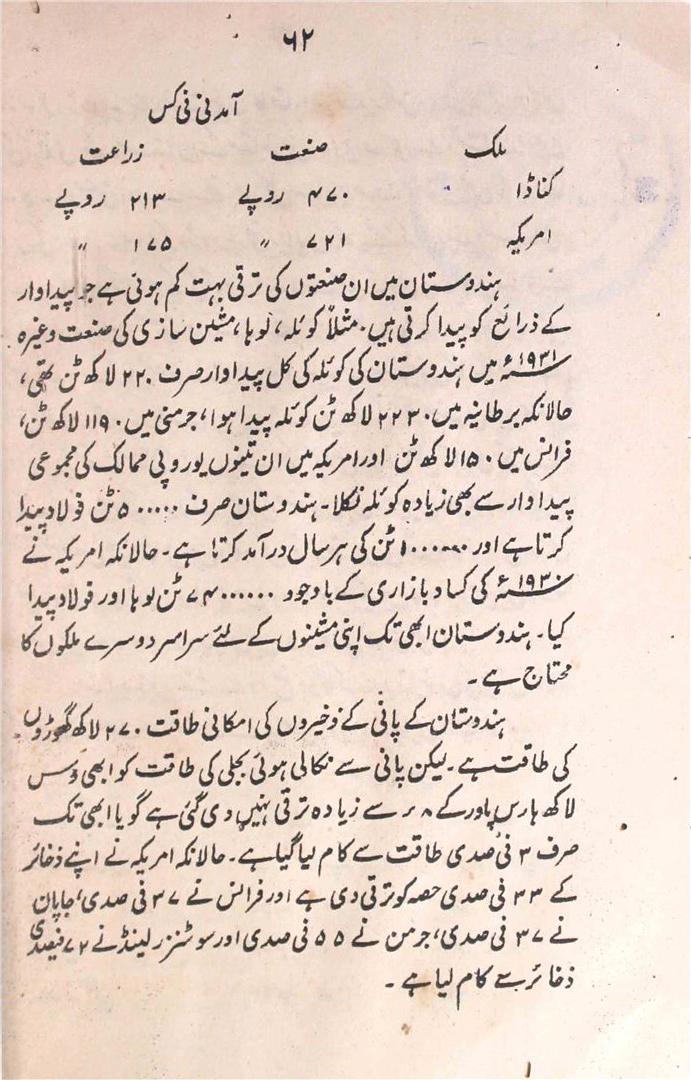 ۶۲
آمدنی فی کس
ملک صنعت زراعت
کناڈا ۴۷۰ روپے ۲۱۳ روپے
امریکہ ۷۲۱〃 ۱۷۵〃
ہندوستان میں ان صنعتوں کی ترقی بہت کم ہوئی ہے جو پیداوار
کے ذرائع کو پیدا کرتی ہیں۔ مثلاً کوئلہ، لوہا، مشین سازی کی صنعت وغیرہ
۱۹۳۱ء میں ہندوستان کی کوئلہ کی کل پیداوار صرف ۲۲۰ لاکھ ٹن تھی،
حالانکہ برطانیہ میں ۲۲۳۰ لاکھ ٹن کوئلہ پیدا ہوا، جرمنی میں ۱۱۹۰ لاکھ ٹن،
فرانس میں ۱۵۰ لاکھ ٹن اور امریکہ میں ان تینوں یوروپی ممالک کی مجموعی
پیداوار سے بھی زیادہ کوئلہ نکلا۔ ہندوستان صرف ۵۰۰۰۰۰ ٹن فولاد پیدا
کرتا ہے اور ٹن کی ہر سال درآمد کرتا ہے۔ حالانکہ امریکہ نے
۱۹۳۰ء کی کساد بازاری کے باوجود ۷۴۰۰۰۰۰۰ ٹن لوہا اور فولاد پیدا
کیا۔ ہندوستان ابھی تک اپنی مشینوں کے لئے سراسر دوسرے ملکوں کا
محتاج ہے۔
ہندوستان کے پانی کے ذخیروں کی امکانی طاقت ۲۷۰ لاکھ گھوڑوں
کی طاقت ہے۔ لیکن پانی سے نکالی ہوئی بجلی کی طاقت کو ابھی دس
لاکھ ہارس پاور کے ۸ر سے زیادہ ترقی نہیں دی گئی ہے گویا ابھی تک
صرف ۳ فی صدی طاقت سے کام لیا گیا ہے۔ حالانکہ امریکہ نے اپنے ذخائر
کے ۳۳ فی صدی حصہ کو ترقی دی ہے اور فرانس نے ۳۷ فی صدی، جاپان
نے ۳۷ فی صدی، جرمن نے ۵۵ فی صدی اور سوئٹزرلینڈ نے ۷۲ فیصدی
ذخائر سے کام لیا ہے۔